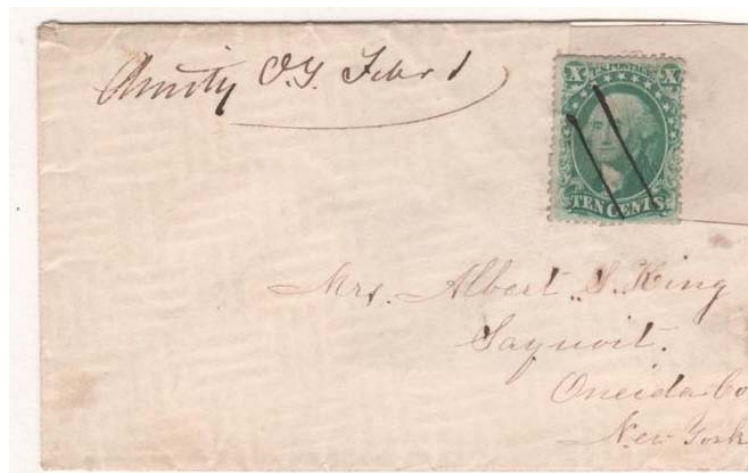 Amity O.T. Febr 1
X U.S. POSTAGE X
TEN CENTS.
Mrs. Albert S. King
Sauquoit.
Oneida Co
New York